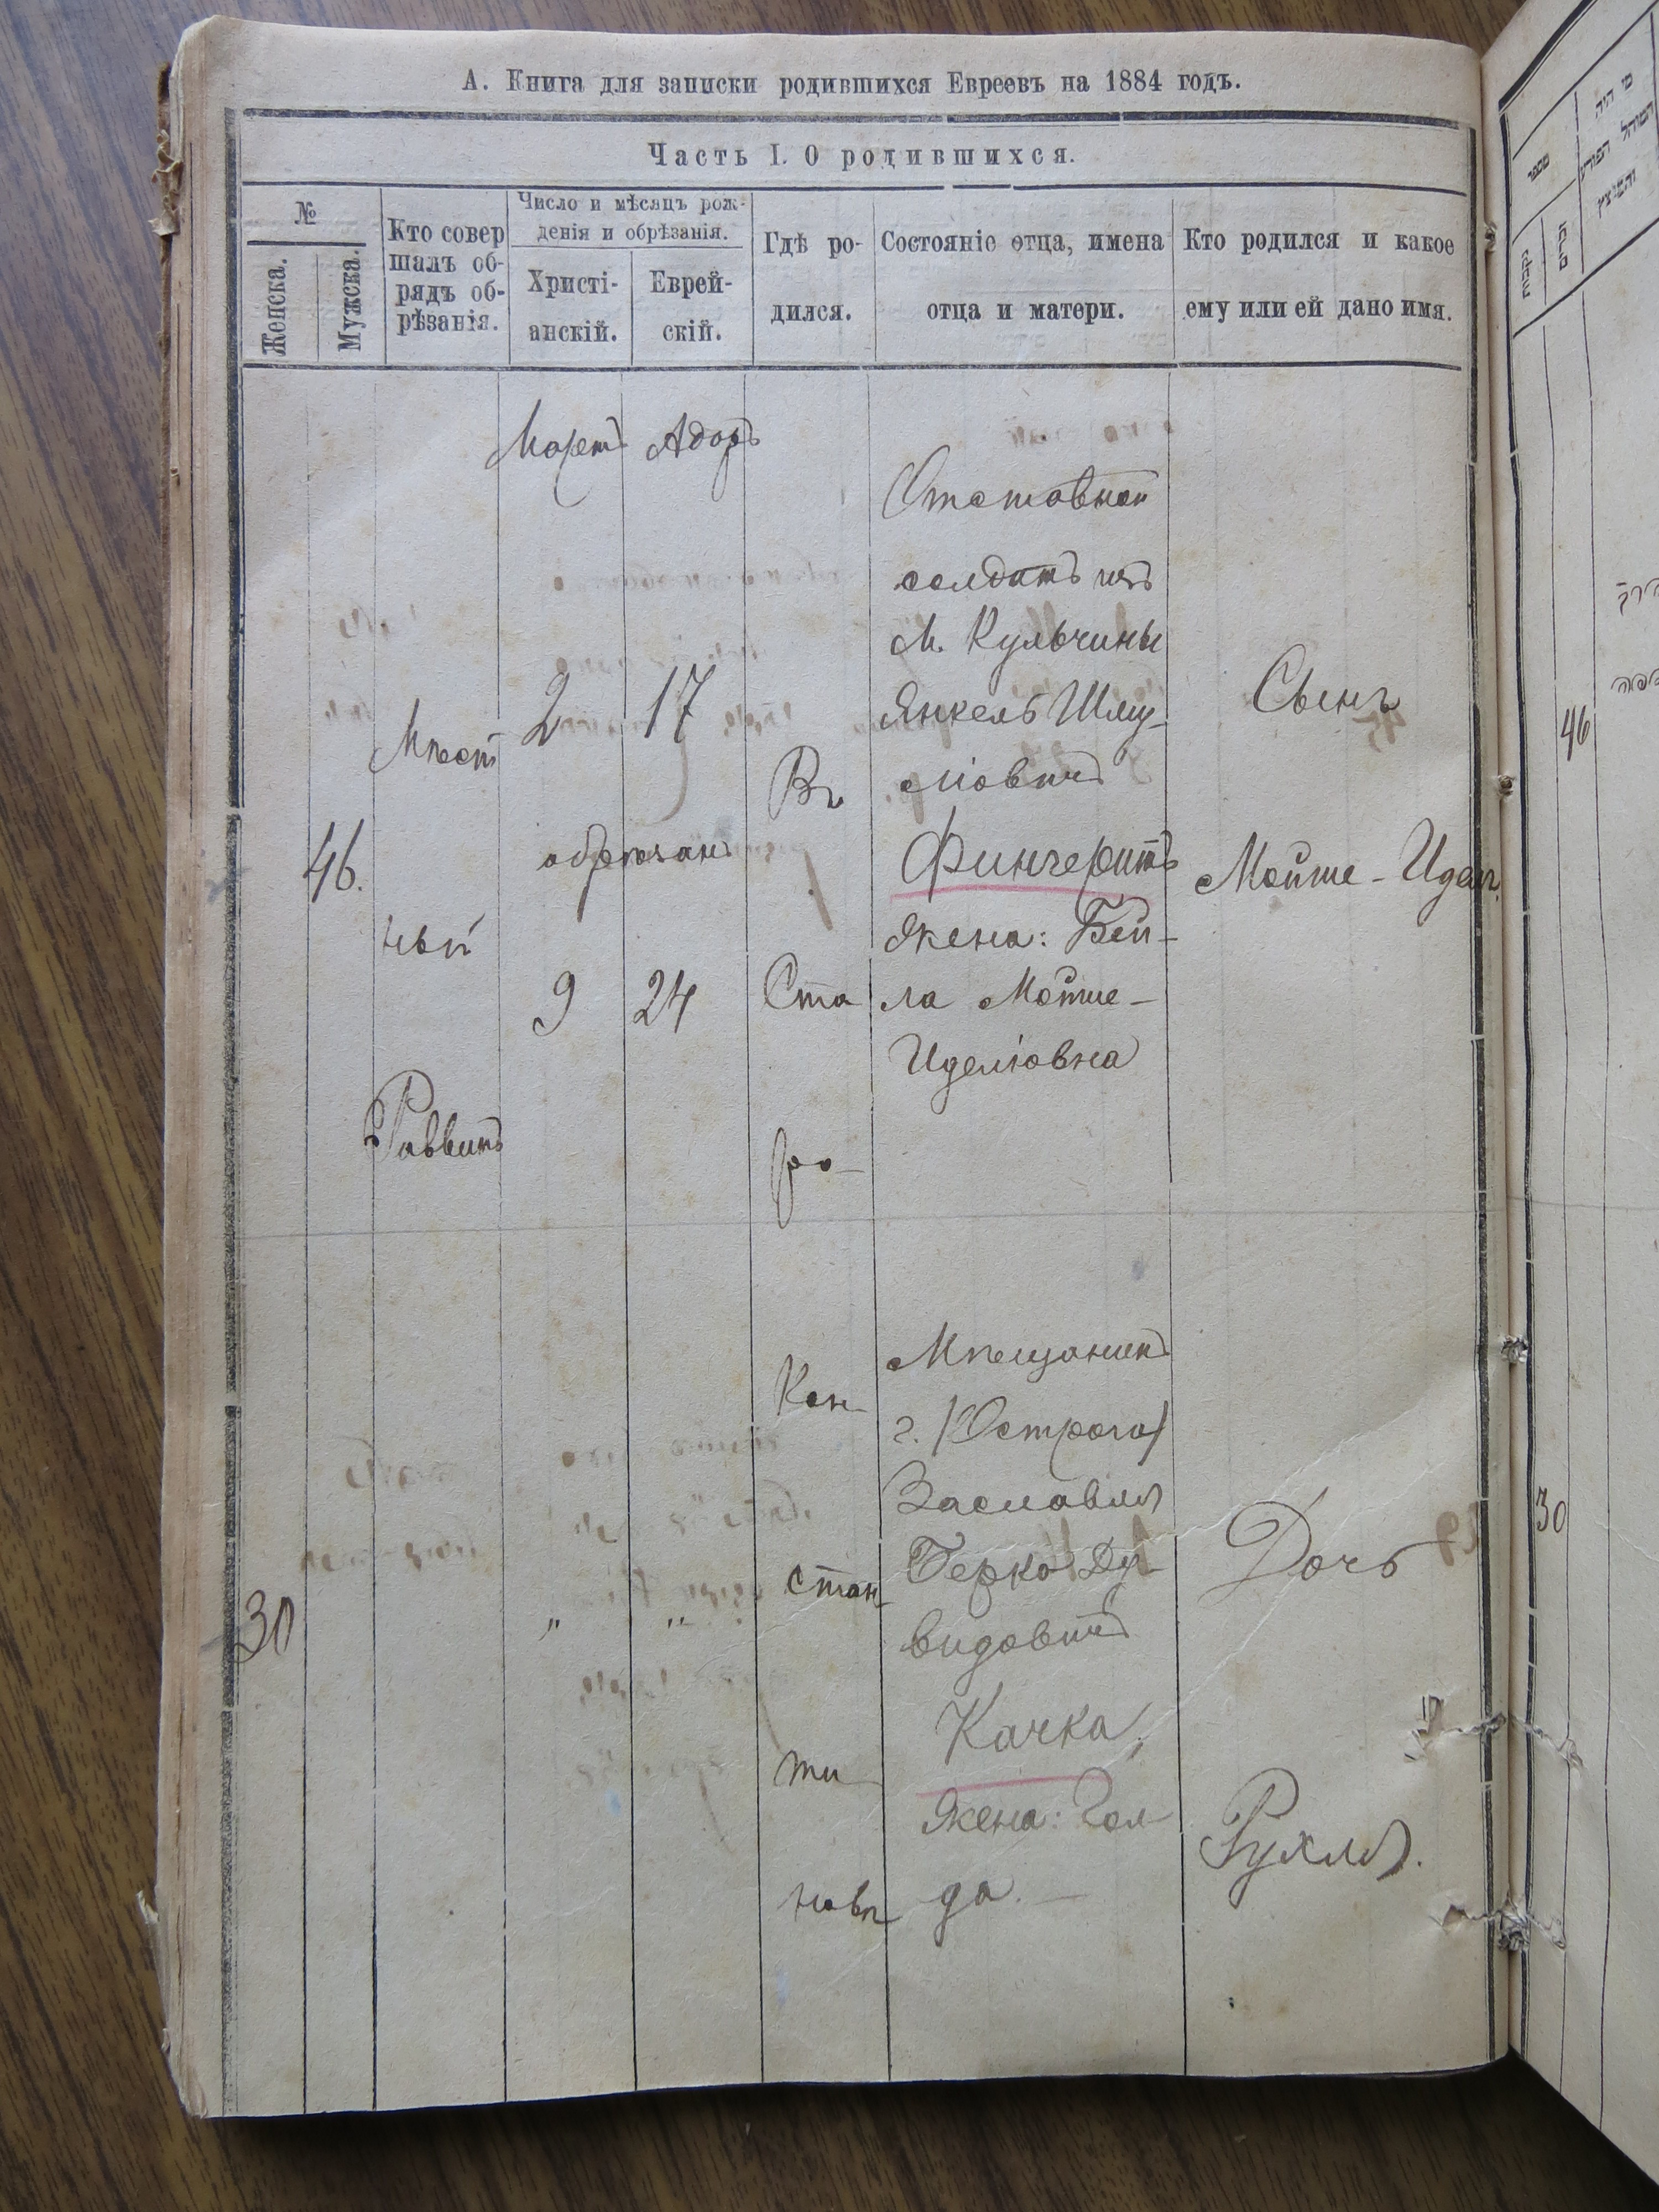 А. Книга для записки родившихся Евреевъ на 1884 годъ.
Часть I. О родившихся.
№
Женска.
Мужска.
Кто совер
шалъ об-
рядъ об-
рѣзанія.
Число и мѣсяцъ рож-
денія и обрѣзанія.
Христі-
анскій.
Еврей-
скій.
Гдѣ ро-
дился.
Состояніе отца, имена
отца и матери.
Кто родился и какое
ему или ей дано имя.
Мартъ Адоръ
46.
Мѣст
ный
Раввинъ
2 17
обрѣзанъ
9 24
Въ
Ста
ро-
Отставной
солдатъ изъ
М. Кульчины
Янкель Шму-
ліовичъ
Финчеритъ
Жена: Бей-
ла Мойше-
Иделіовна
Сынъ
Мойше-Идель
30
" "
Кон-
стан-
ти
новѣ
Мѣщанинъ
г. /Острога/
Заславля
Берко Ду-
видовичъ
Качка,
Жена: Гол-
да. —
Дочь
Рухля.
46
30